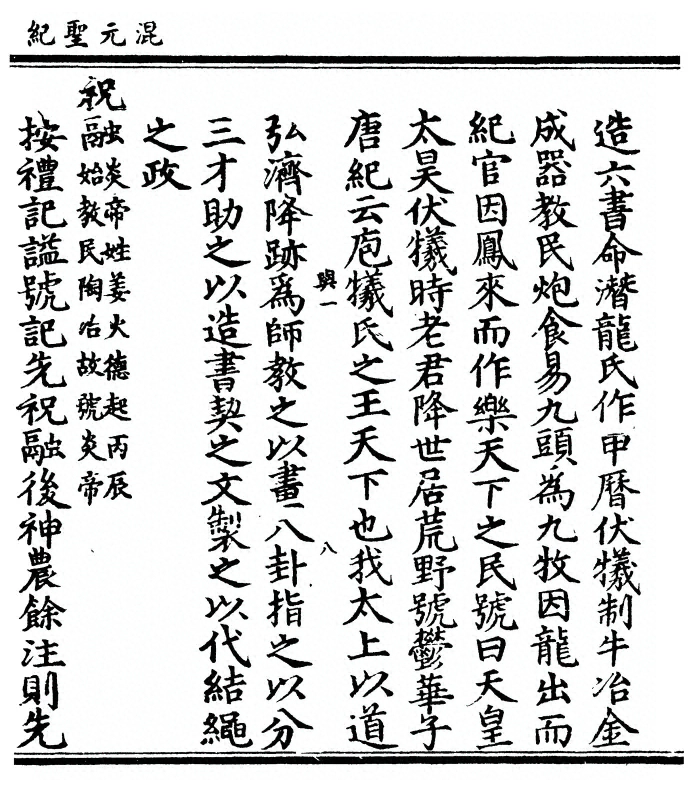 混元聖紀
造六書命潛龍氏作甲曆伏犧制牛冶金
成器教民炮食易九頭為九牧因龍出而
紀官因鳳來而作樂天下之民號曰天皇
太昊伏犧時老君降世居荒野號鬱華子
唐紀云庖犧氏之王天下也我太上以道
與一
八
弘濟降跡為師教之以畫八卦指之以分
三才助之以造書契之文製之以代結繩
之政
祝融炎帝姓姜火德起丙辰
始教民陶冶故號炎帝
按禮記諡號記先祝融後神農餘注則先